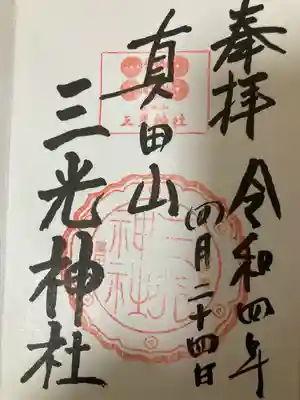 奉拝
令和四年
四月二十四日
真田山
三光神社
三光神社
三光神社